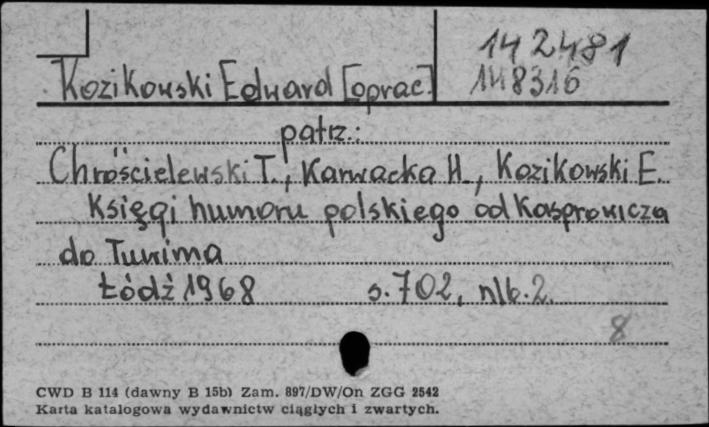 142481
Kozikowski Edward [oprac.]
148316
patrz.:
Chróścielewski T., Karwacka H., Kozikowski E.
Księgi humoru polskiego od Kasprowicza
do Tuwima
Łódź 1968 s. 702, nlb. 2.
8
CWD B 114 (dawny B 15b) Zam. 897/DW/On ZGG 2542
Karta katalogowa wydawnictw ciągłych i zwartych.